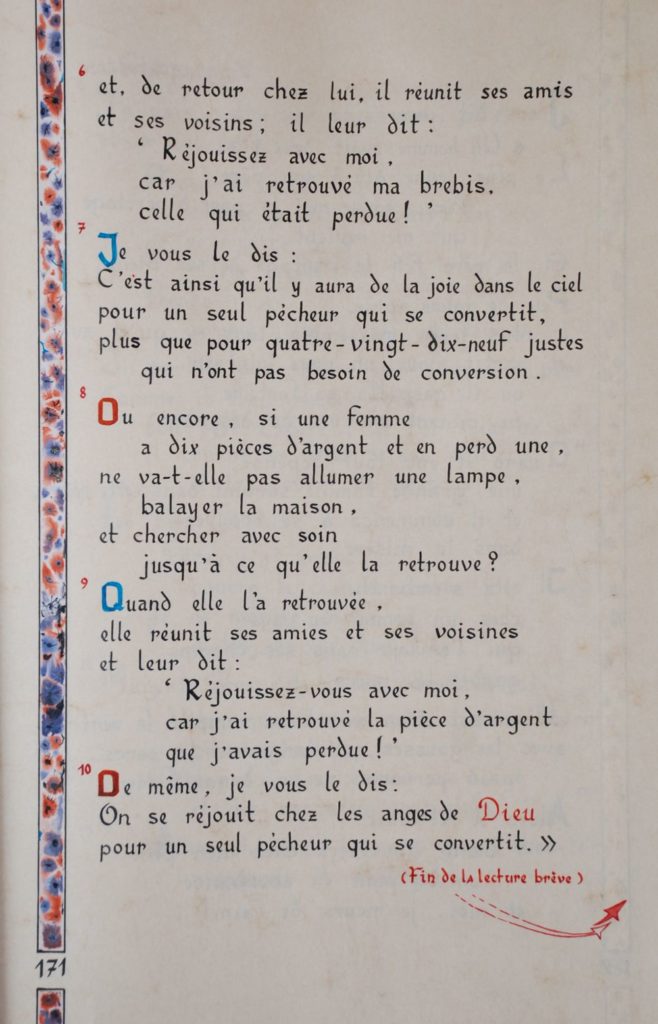 6
et, de retour chez lui, il réunit ses amis
et ses voisins ; il leur dit :
‘ Réjouissez avec moi ,
car j'ai retrouvé ma brebis,
celle qui était perdue ! ’
7
Je vous le dis :
C'est ainsi qu'il y aura de la joie dans le ciel
pour un seul pécheur qui se convertit,
plus que pour quatre-vingt-dix-neuf justes
qui n'ont pas besoin de conversion .
8
Ou encore , si une femme
a dix pièces d'argent et en perd une ,
ne va-t-elle pas allumer une lampe ,
balayer la maison ,
et chercher avec soin
jusqu'à ce qu'elle la retrouve ?
9
Quand elle l'a retrouvée ,
elle réunit ses amies et ses voisines
et leur dit :
‘ Réjouissez-vous avec moi ,
car j'ai retrouvé la pièce d'argent
que j'avais perdue ! ’
10
De même, je vous le dis :
On se réjouit chez les anges de Dieu
pour un seul pécheur qui se convertit. »
(Fin de la lecture brève)
171